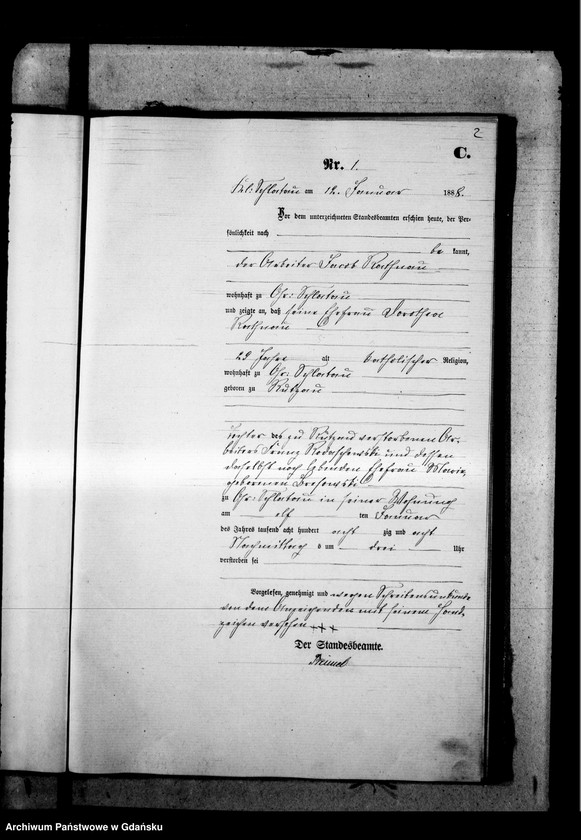 2
C.
Nr. 1.
Kl: Schlatau am 12. Januar 1888.
Vor dem unterzeichneten Standesbeamten erschien heute, der Per-
sönlichkeit nach
be kannt,
der Arbeiter Jacob Rathnau
wohnhaft zu Gr: Schlatau
und zeigte an, daß seine Ehefrau Dorothea
Rathnau
29 Jahre alt katholischer Religion,
wohnhaft zu Gr: Schlatau
geboren zu Rutzau
Tochter des zu Rutzau verstorbenen Ar-
beiters Franz und dessen
daselbst noch lebenden Ehefrau Maria,
geborenen
zu Gr: Schlatau in seiner Wohnung
am elf ten Januar
des Jahres tausend acht hundert acht zig und acht
Nachmittag s um drei Uhr
verstorben sei
Vorgelesen, genehmigt und wegen Schreibensunkunde
von dem Anzeigenden mit seinem Hand-
zeichen versehen +++
Der Standesbeamte.
Archiwum Państwowe w Gdańsku